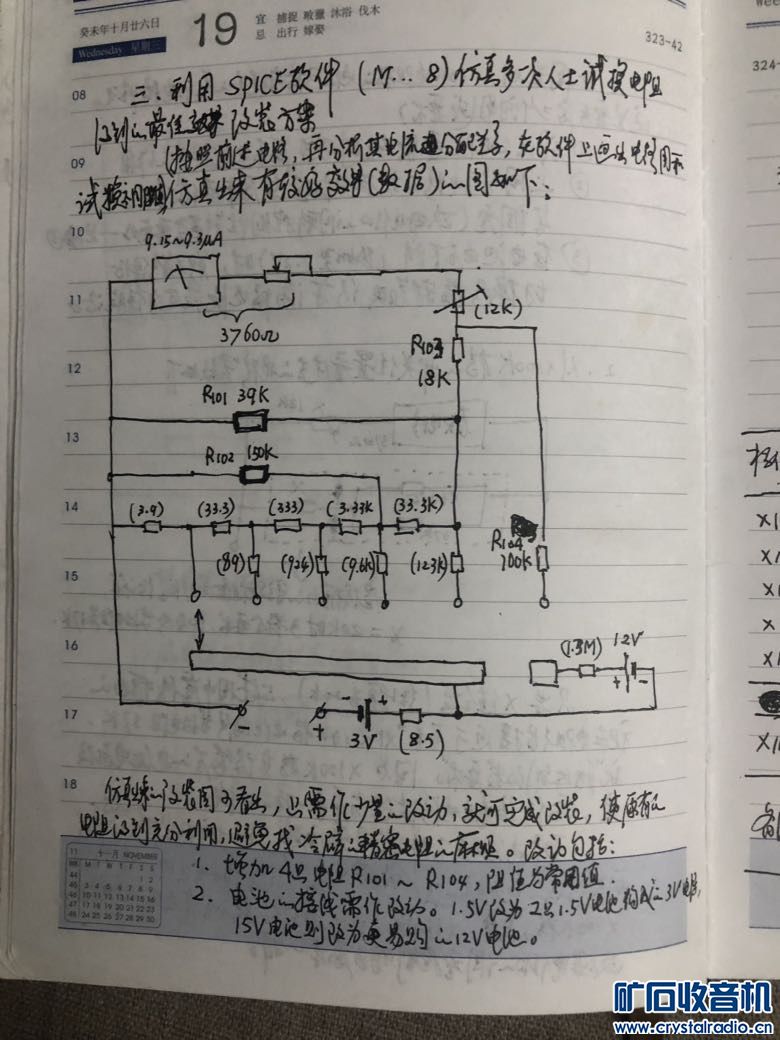 癸未年十月廿六日
Wednesday 星期三
19
宜 捕捉 畋獵 沐浴 伐木
忌 出行 嫁娶
323-42
08
三、利用SPICE软件(M...8)仿真多次人士试换电阻
得到的最佳改装方案
09
(按照前述电路,再分析其电流通分配关系,在软件上画出电路图示
试换不同阻值)仿真出来有较好效果(数据)的图如下:
10
9.15~9.3μA
11
(12K)
3760Ω
R103
12
18K
R101 39K
13
R102 150K
14
(3.9) (33.3) (333) (3.33K) (33.3K)
R104
(89) (924) (9.6K) (123K) 700K
15
16
(1.3M) 12V
+ -
17
- + - + 3V (8.5)
18
仿真出来的改装图可看出,只需作少量的改动,就可完成改装,使原有的
电阻得到充分利用,避免找冷僻的精密电阻的麻烦。改动包括:
11 十一月 NOVEMBER
1. 增加4只电阻R101~R104,阻值为常用值.
2. 电池的接线需作改动。1.5V改为2只1.5V电池构成的3V电池,
15V电池则改为更易购的12V电池。
324-
x1
x1
x
x
x1
x1
矿石收音机
www.crystalradio.cn